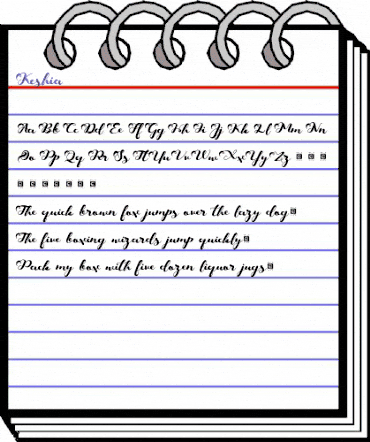 Keshia
Aa Bb Cc Dd Ee Ff Gg Hh Ii Jj Kk Ll Mm Nn
Oo Pp Qq Rr Ss Tt Uu Vv Ww Xx Yy Zz
The quick brown fox jumps over the lazy dog
The five boxing wizards jump quickly
Pack my box with five dozen liquor jugs